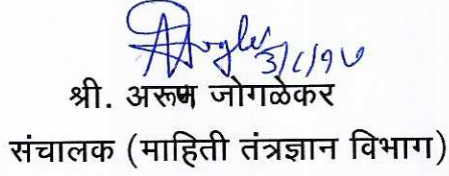 3/1/17
श्री. अरुण जोगळेकर
संचालक (माहिती तंत्रज्ञान विभाग)